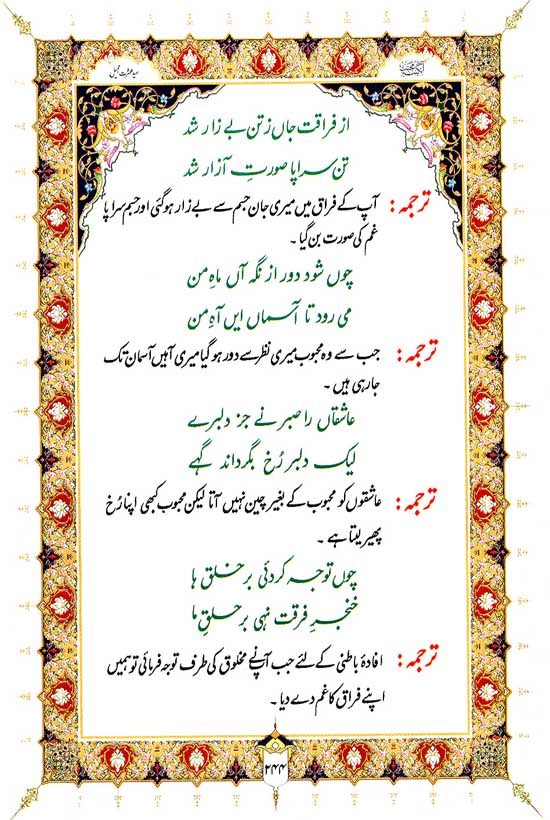 از فراقت جاں ز تن بے زار شد
تن سراپا صورتِ آزار شد
ترجمہ : آپ کے فراق میں میری جان جسم سے بے زار ہوگئی اور جسم سراپا
غم کی صورت بن گیا ۔
چوں شود دور از نگہ آں ماہِ من
می رود تا آسماں ایں آہِ من
ترجمہ : جب سے وہ محبوب میری نظر سے دور ہو گیا میری آہیں آسمان تک
جا رہی ہیں ۔
عاشقاں را صبر نے جز دلبرے
لیک دلبر رُخ بگرداند گہے
ترجمہ : عاشقوں کو محبوب کے بغیر چین نہیں آتا لیکن محبوب کبھی اپنا رُخ
پھیر لیتا ہے ۔
چوں توجہ کردئی بر خلق ہا
خنجرِ فرقت نہی بر حلقِ ما
ترجمہ : افادۂ باطنی کے لئے جب آپ نے مخلوق کی طرف توجہ فرمائی تو ہمیں
اپنے فراق کا غم دے دیا ۔
۲۴۴